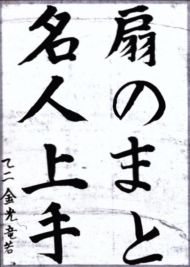 扇のまと
名人上手
乙二 金光竜若